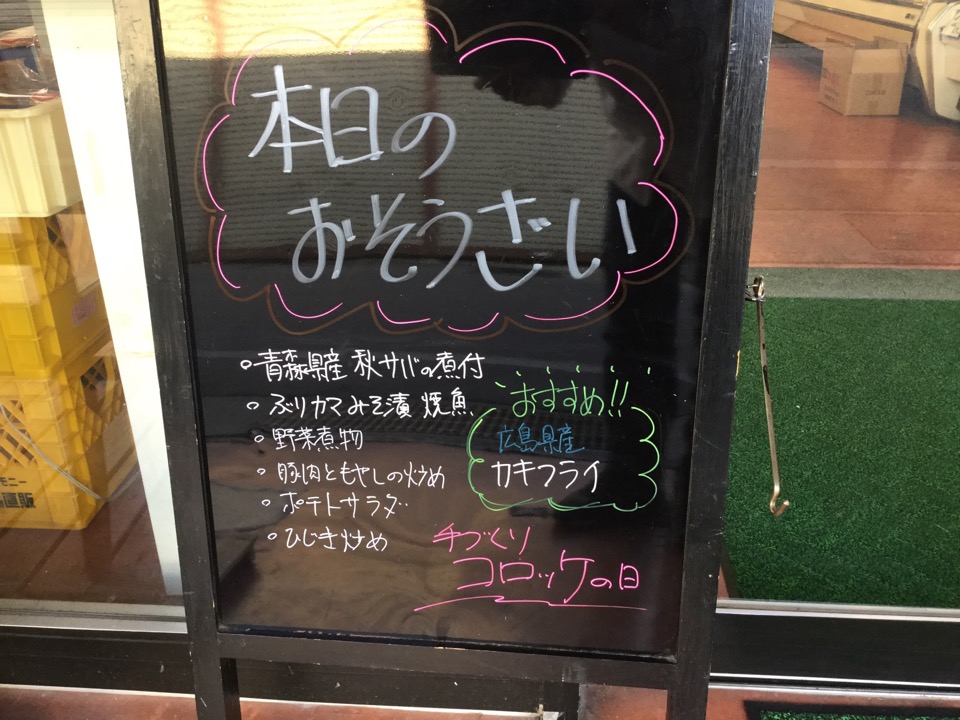 本日の
おそうざい
○青森県産 秋サバの煮付
○ぶりカマみそ漬 焼魚
○野菜煮物
○豚肉ともやしの炒め
○ポテトサラダ
○ひじき炒め
おすすめ!!
広島県産
カキフライ
手づくり
コロッケの日
モニー
直販